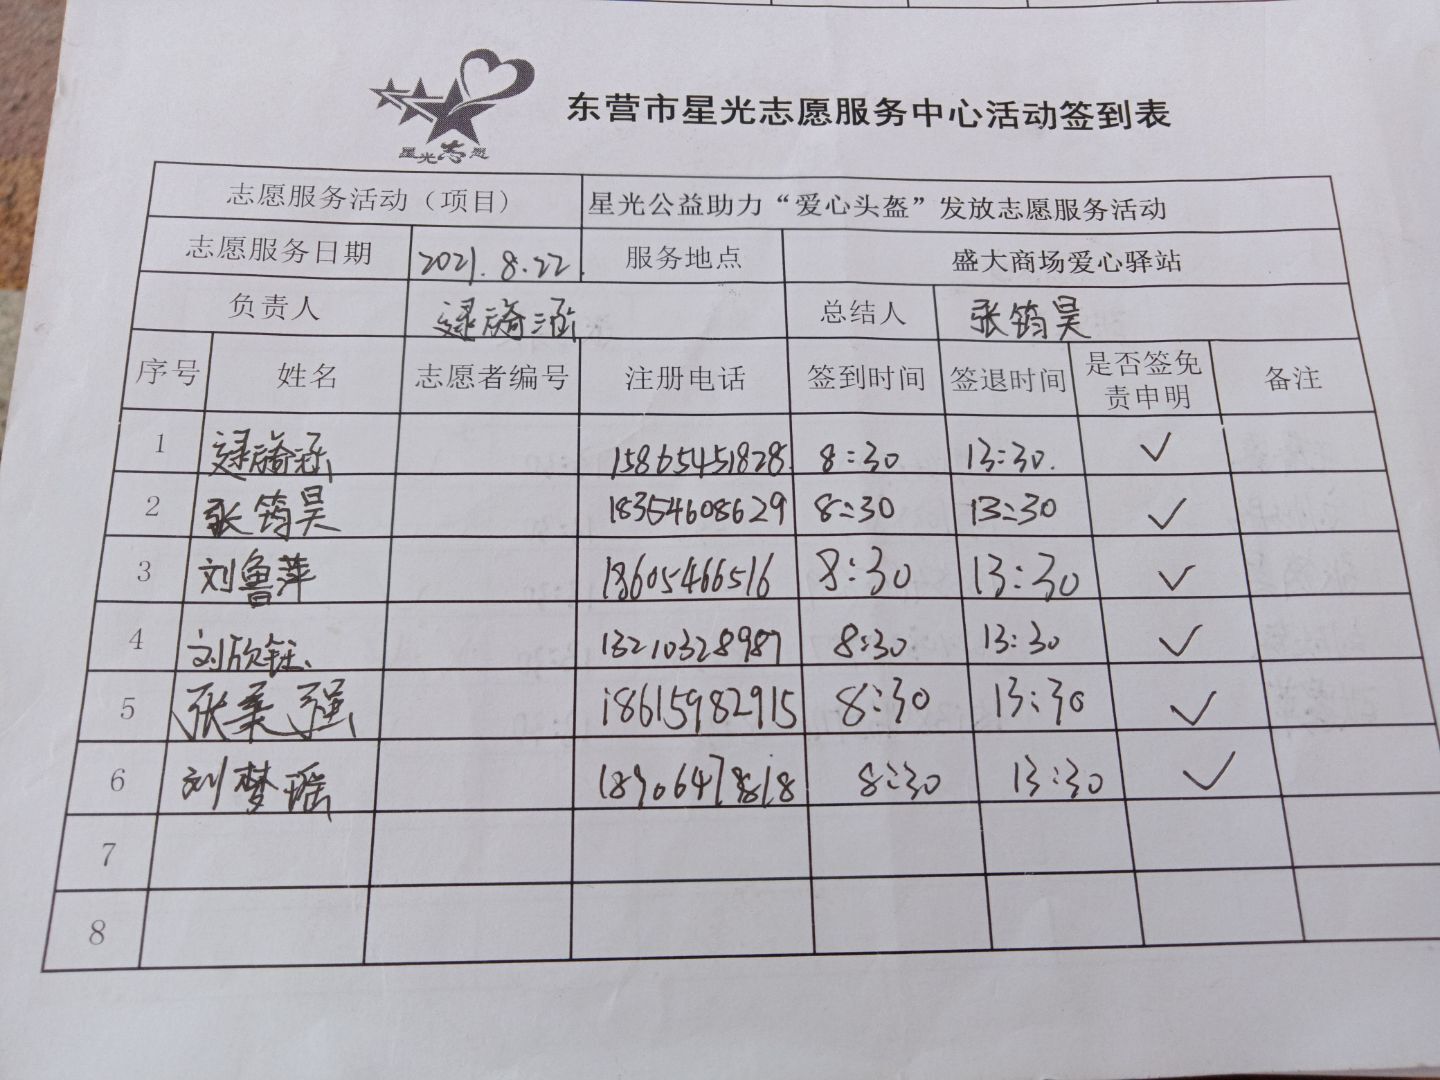 星光志愿
东营市星光志愿服务中心活动签到表
志愿服务活动（项目） 星光公益助力“爱心头盔”发放志愿服务活动
志愿服务日期 2021.8.22. 服务地点 盛大商场爱心驿站
负责人 总结人 张筠昊
序号 姓名 志愿者编号 注册电话 签到时间 签退时间 是否签免责申明 备注
1 15865451828. 8:30 13:30. ✓
2 张筠昊 18354608629 8:30 13:30 ✓
3 刘鲁萍 18605466516 8:30 13:30 ✓
4 刘欣钰 13210328987 8:30 13:30 ✓
5 张柔强 18615982915 8:30 13:30 ✓
6 刘梦瑶 8:30 13:30 ✓
7
8